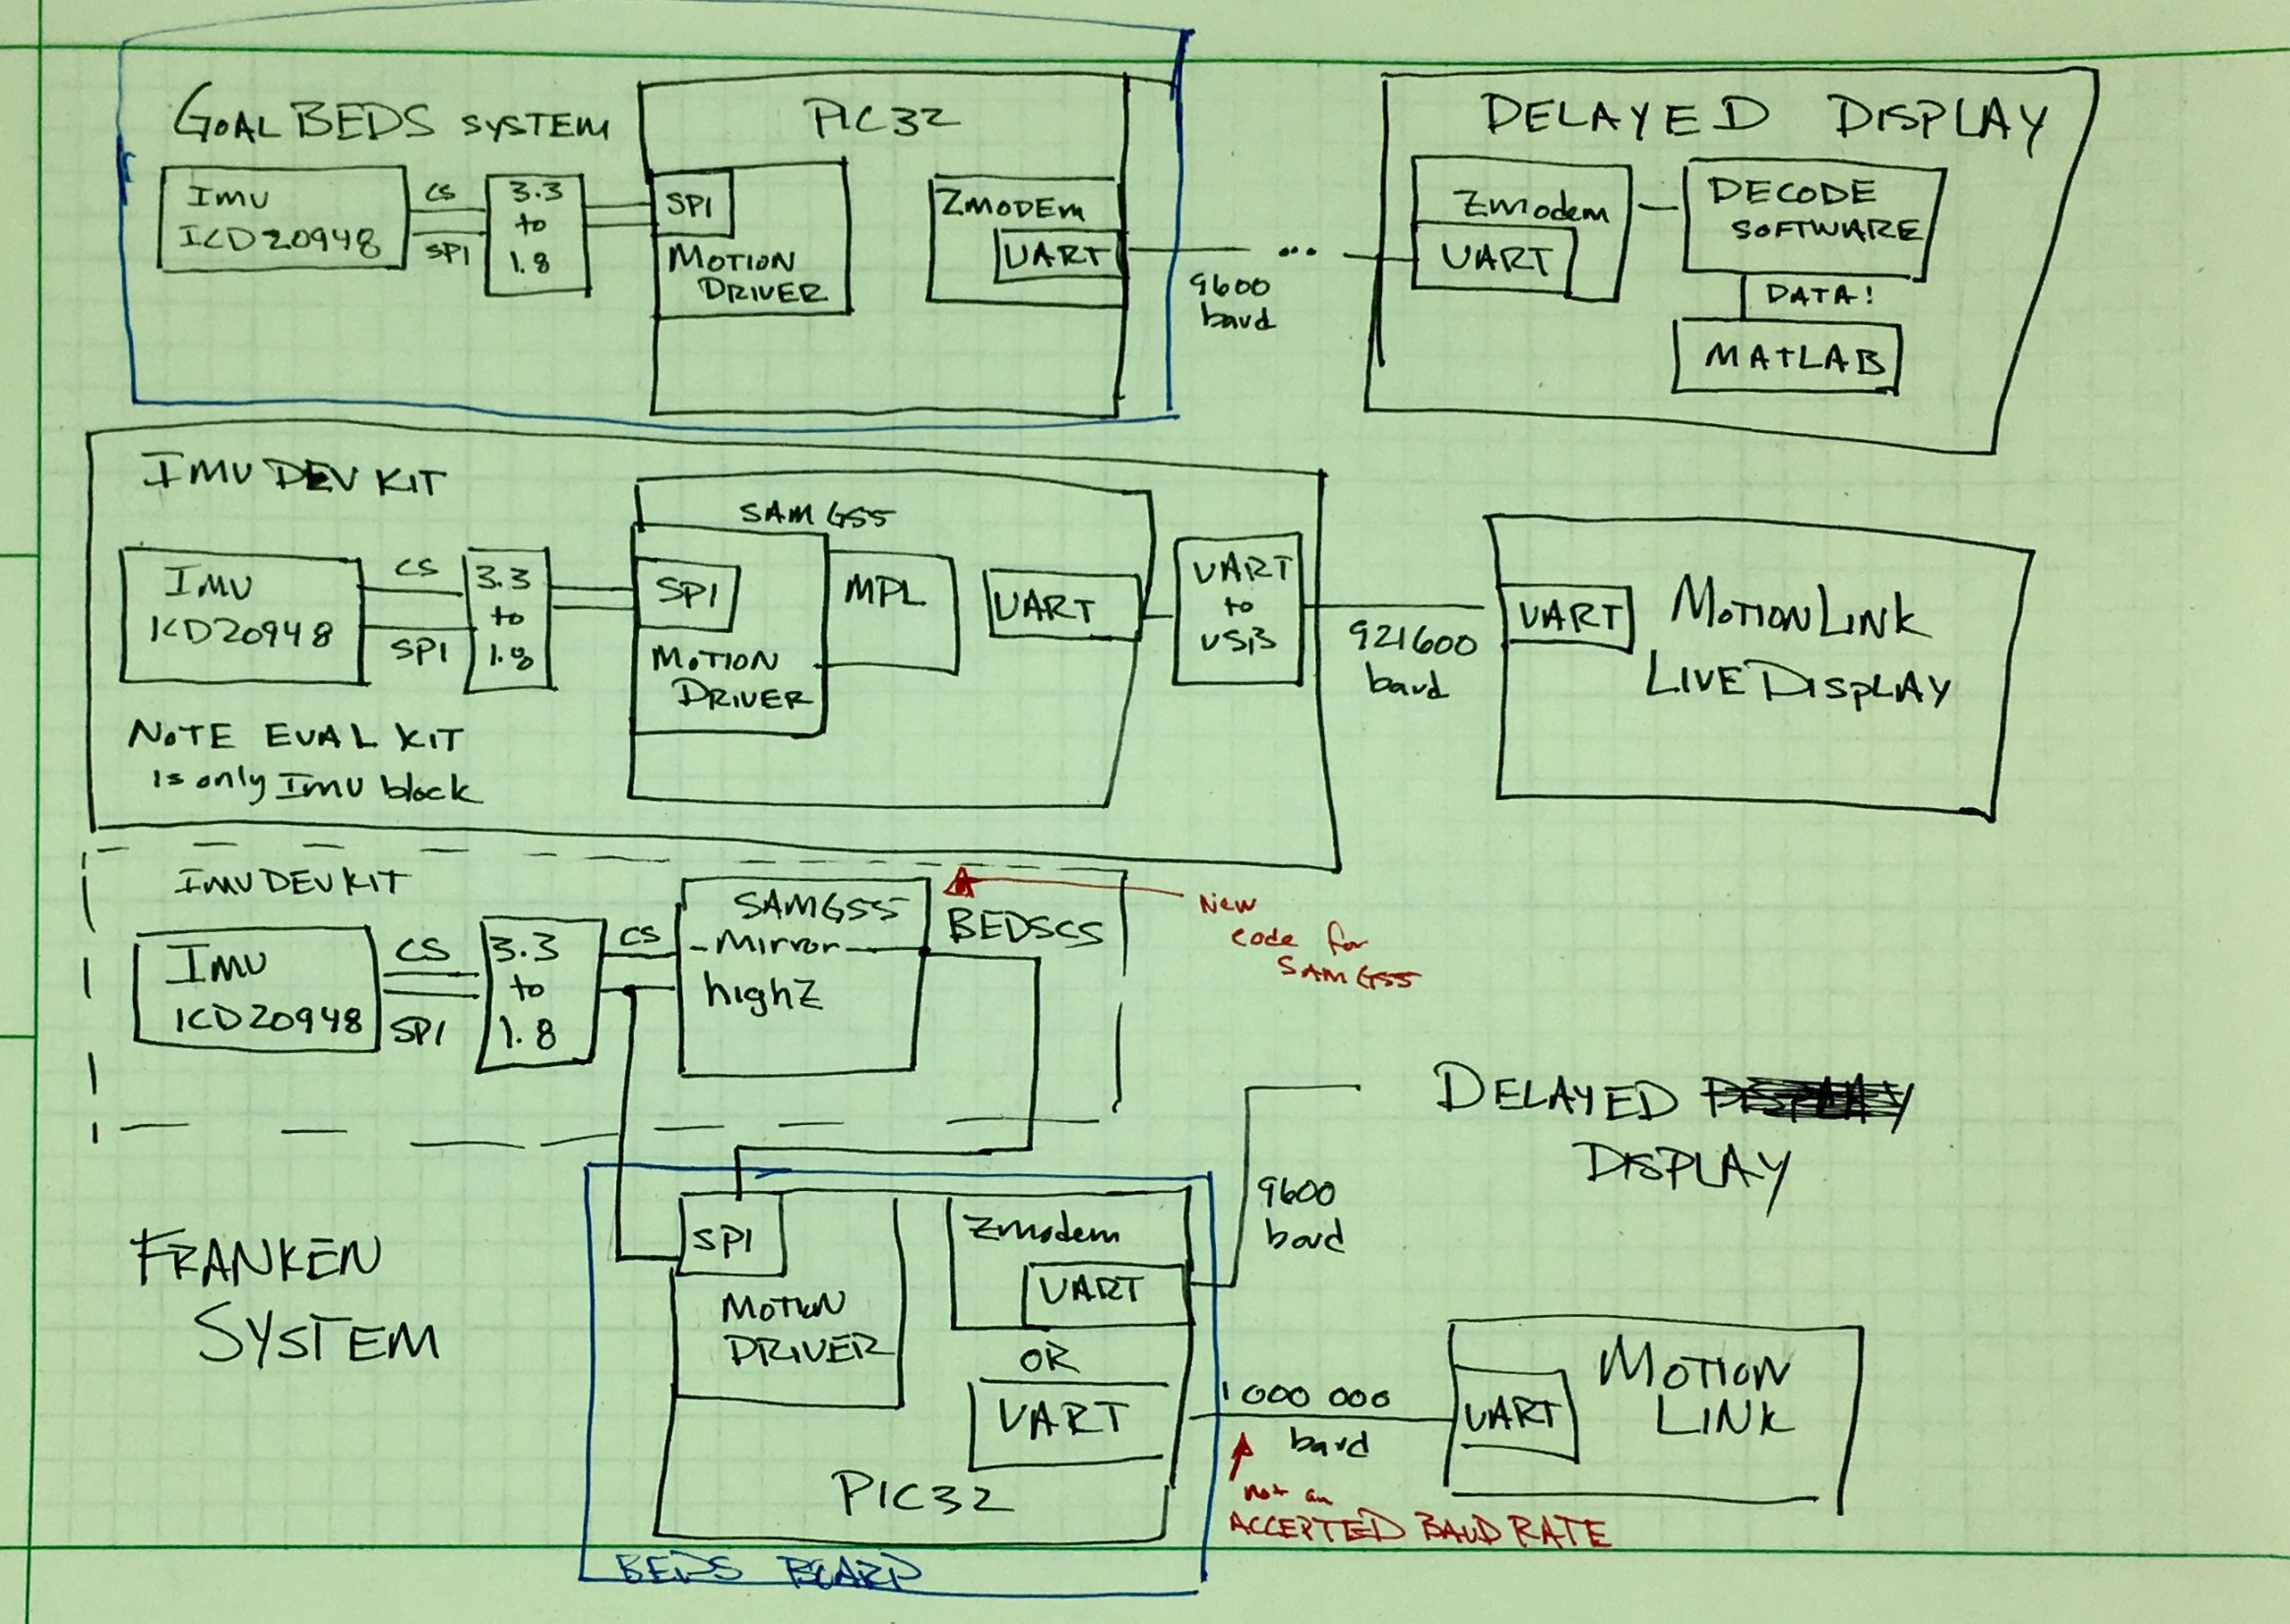 GOAL BEDS SYSTEM
PIC32
IMU
ICD20948
CS
SPI
3.3
to
1.8
SPI
MOTION
DRIVER
ZMODEM
UART
9600
baud
...
DELAYED DISPLAY
Zmodem
UART
DECODE
SOFTWARE
DATA!
MATLAB
IMU DEV KIT
SAM G55
IMU
ICD20948
CS
SPI
3.3
to
1.8
SPI
MOTION
DRIVER
MPL
UART
UART
to
USB
921600
baud
UART
MOTIONLINK
LIVE DISPLAY
NOTE EVAL KIT
is only IMU block
IMU DEV KIT
IMU
ICD20948
CS
SPI
3.3
to
1.8
CS
SAMG55
-Mirror-
highZ
BEDSCS
New
code for
SAM G55
DELAYED DISPLAY
DISPLAY
9600
baud
FRANKEN
SYSTEM
SPI
MOTION
DRIVER
Zmodem
UART
OR
UART
PIC32
BEDS BOARD
1 000 000
baud
not an
ACCEPTED BAUD RATE
UART
MOTION
LINK